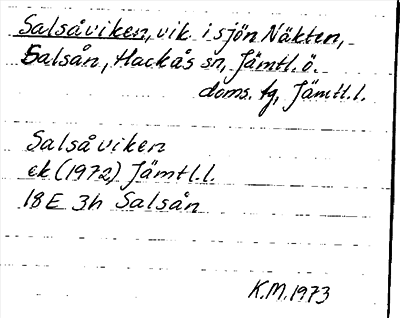 Salsåviken, vik i sjön Näkten,
Salsån, Hackås sn, Jämtl. ö.
doms. fg, Jämtl. l.
Salsåviken
ek (1972) Jämtl. l.
18E 3h Salsån
K.M. 1973